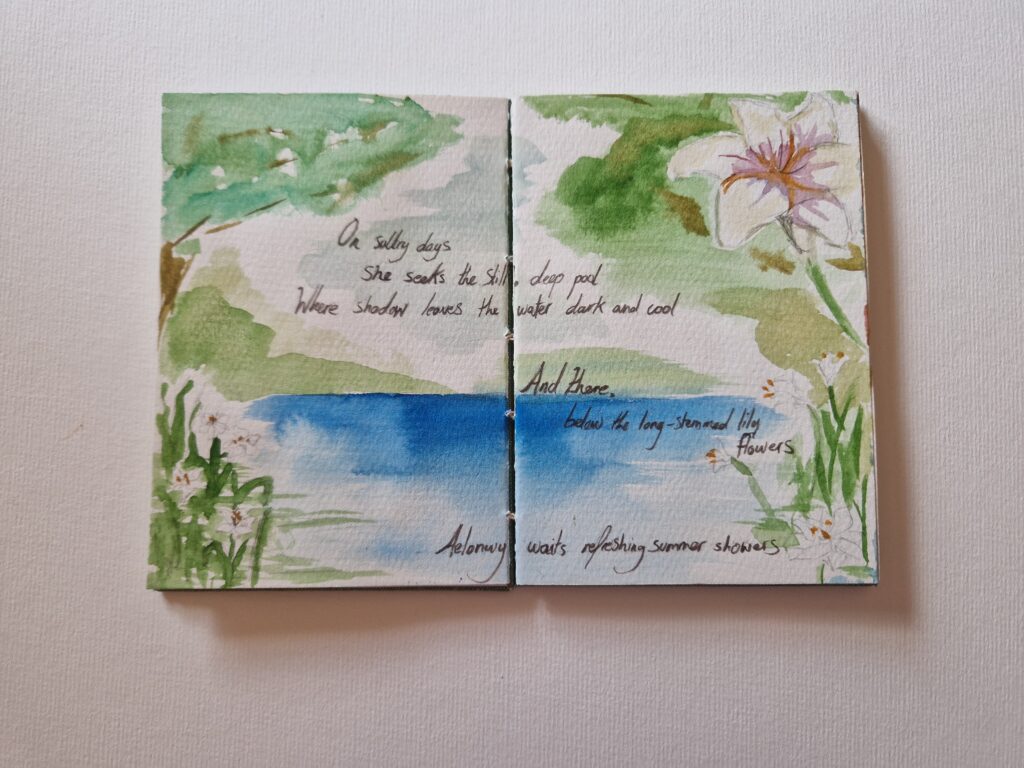 On sultry days
She seeks the still, deep pool
Where shadow leaves the water dark and cool
And there,
below the long-stemmed lily
flowers
Aelonwy waits refreshing summer showers.